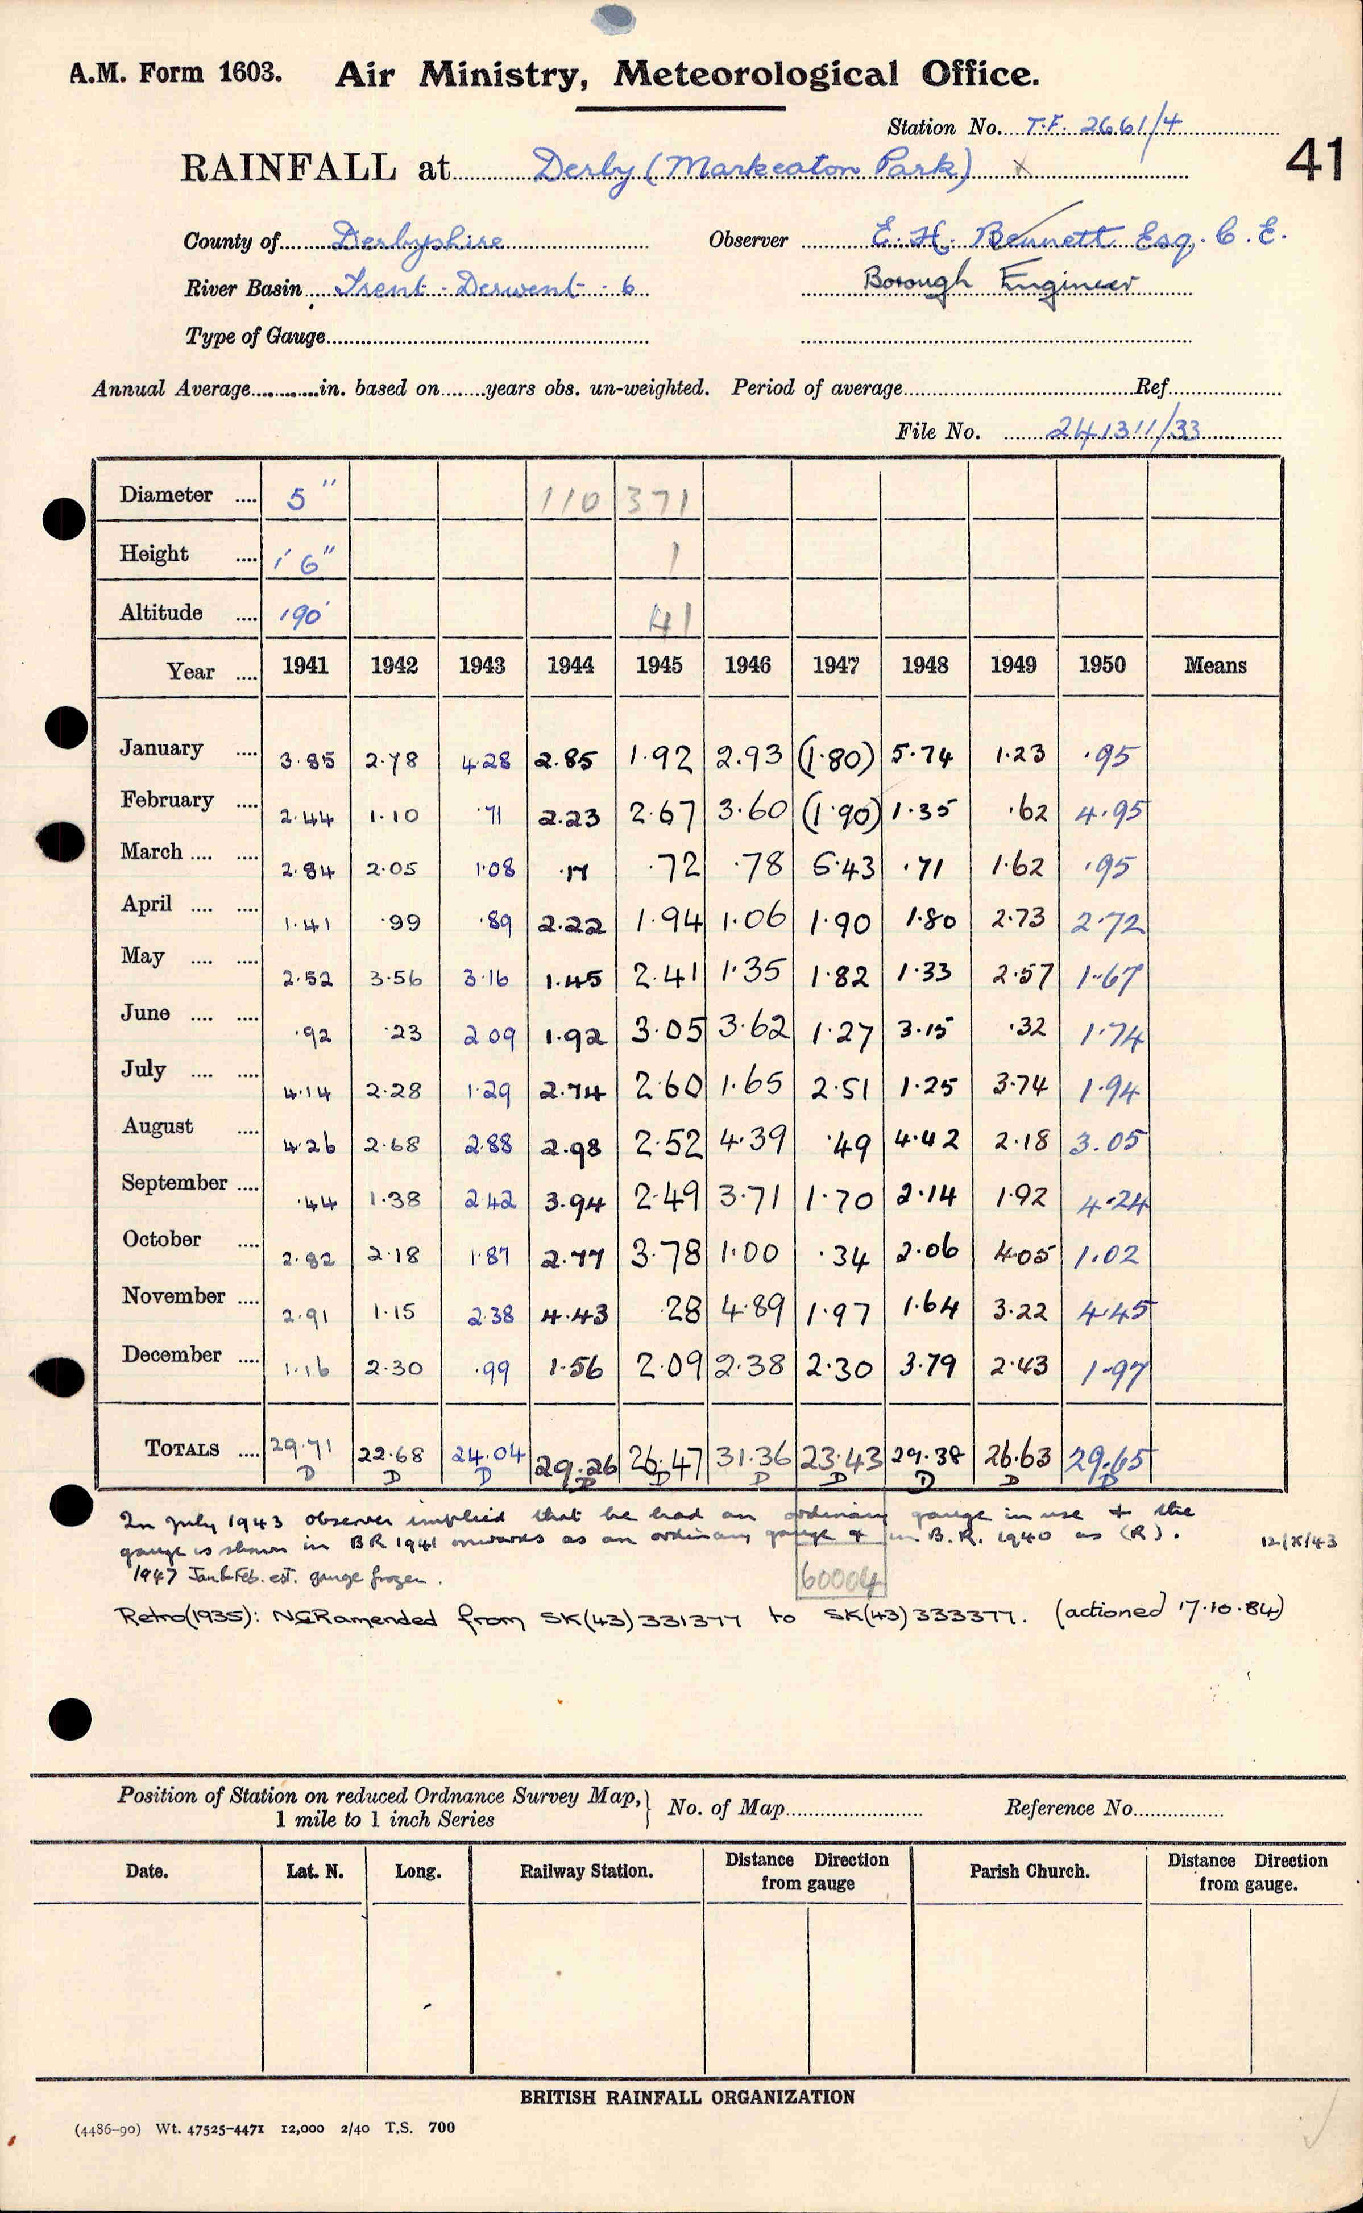 A.M. Form 1603. Air Ministry, Meteorological Office.
Station No. T.F. 2661/4
41
RAINFALL at Derby (Markeaton Park) x
County of Derbyshire Observer E. H. Bennett Esq. C. E.
River Basin Trent - Derwent - 6 Borough Engineer
Type of Gauge
Annual Average in. based on years obs. un-weighted. Period of average Ref.
File No. 241311/33
Diameter 5" 110 371
Height 1' 6" 1
Altitude 190' 41
Year 1941 1942 1943 1944 1945 1946 1947 1948 1949 1950 Means
January 3.85 2.78 4.28 2.85 1.92 2.93 (1.80) 5.74 1.23 .95
February 2.44 1.10 .71 2.23 2.67 3.60 (1.90) 1.35 .62 4.95
March 2.84 2.05 1.08 .17 .72 .78 5.43 .71 1.62 .95
April 1.41 .99 .89 2.22 1.94 1.06 1.90 1.80 2.73 2.72
May 2.52 3.56 3.16 1.45 2.41 1.35 1.82 1.33 2.57 1.67
June .92 .23 2.09 1.92 3.05 3.62 1.27 3.15 .32 1.74
July 4.14 2.28 1.29 2.74 2.60 1.65 2.51 1.25 3.74 1.94
August 4.26 2.68 2.88 2.98 2.52 4.39 .49 4.42 2.18 3.05
September .44 1.38 2.42 3.94 2.49 3.71 1.70 2.14 1.92 4.24
October 2.82 2.18 1.87 2.77 3.78 1.00 .34 2.06 4.05 1.02
November 2.91 1.15 2.38 4.43 .28 4.89 1.97 1.64 3.22 4.45
December 1.16 2.30 .99 1.56 2.09 2.38 2.30 3.79 2.43 1.97
TOTALS 29.71 22.68 24.04 29.26 26.47 31.36 23.43 29.38 26.63 29.65
D D D D D D D D D D
In July 1943 observer implied that he had an ordinary gauge in use & the
gauge is shown in BR 1941 onwards as an ordinary gauge & in B.R. 1940 as (R). 12/X/43
1947 Jan & Feb. est. gauge frozen.
60004
Retro(1935): NGR amended from SK(43)331377 to SK(43)333377. (actioned 17.10.84)
Position of Station on reduced Ordnance Survey Map, 1 mile to 1 inch Series } No. of Map Reference No.
Date. Lat. N. Long. Railway Station. Distance Direction from gauge Parish Church. Distance Direction from gauge.
BRITISH RAINFALL ORGANIZATION
(4486-90) Wt. 47525-4471 12,000 2/40 T.S. 700